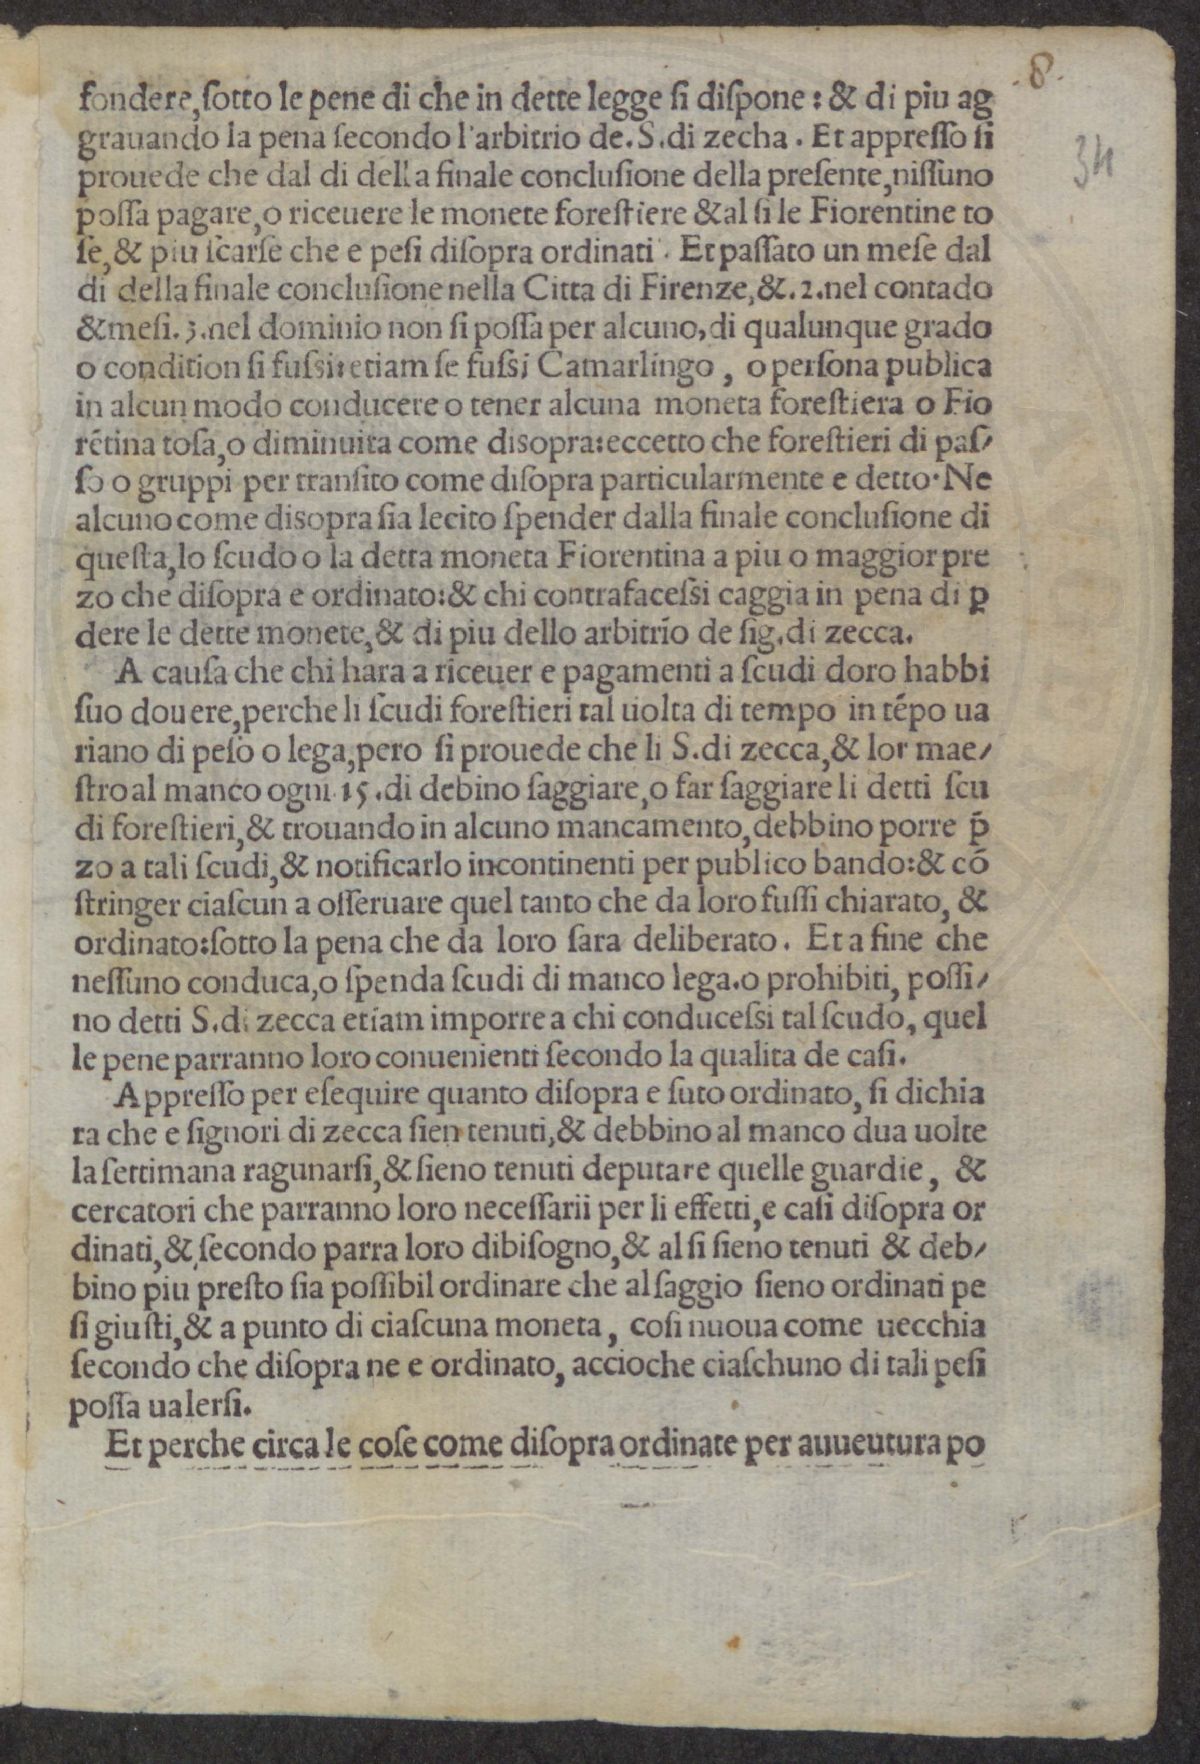 .8.
34
fondere, ſotto le pene di che in dette legge ſi diſpone: & di piu ag
grauando la pena ſecondo l'arbitrio de. S. di zecha. Et appreſſo ſi
prouede che dal di della finale concluſione della preſente, niſſuno
poſſa pagare, o riceuere le monete foreſtiere & al ſi le Fiorentine to
ſe, & piu ſcarſe che e peſi diſopra ordinati. Et paſſato un meſe dal
di della finale concluſione nella Citta di Firenze, &. 2. nel contado
& meſi. 3. nel dominio non ſi poſſa per alcuno, di qualunque grado
o condition ſi fuſsi: etiam ſe fuſsi Camarlingo, o perſona publica
in alcun modo conducere o tener alcuna moneta foreſtiera o Fio
rẽtina toſa, o diminuita come disopra: eccetto che foreſtieri di paſ/
ſo o gruppi per tranſito come diſopra particularmente e detto. Ne
alcuno come disopra ſia lecito ſpender dalla finale concluſione di
queſta, lo ſcudo o la detta moneta Fiorentina a piu o maggior pre
zo che diſopra e ordinato: & chi contrafaceſsi caggia in pena di ꝑ
dere le dette monete, & di piu dello arbitrio de ſig. di zecca.
A cauſa che chi hara a riceuer e pagamenti a ſcudi doro habbi
ſuo douere, perche li ſcudi foreſtieri tal uolta di tempo in tẽpo ua
riano di peſo o lega, pero ſi prouede che li S. di zecca, & lor mae/
ſtro al manco ogni 15. di debino ſaggiare, o far ſaggiare li detti ſcu
di foreſtieri, & trouando in alcuno mancamento, debbino porre p̃
zo a tali ſcudi, & notificarlo incontinenti per publico bando: & cõ
ſtringer ciaſcun a oſſeruare quel tanto che da loro fuſſi chiarato, &
ordinato: ſotto la pena che da loro ſara deliberato. Et a fine che
neſſuno conduca, o ſpenda ſcudi di manco lega. o prohibiti, poſſi/
no detti S. di zecca etiam imporre a chi conduceſsi tal ſcudo, quel
le pene parranno loro conuenienti ſecondo la qualita de caſi.
Appreſſo per eſequire quanto diſopra e ſuto ordinato, ſi dichia
ra che e ſignori di zecca ſien tenuti, & debbino al manco dua uolte
la ſettimana ragunarſi, & ſieno tenuti deputare quelle guardie, &
cercatori che parranno loro neceſſarii per li effetti, e caſi diſopra or
dinati, & ſecondo parra loro dibiſogno, & al ſi ſieno tenuti & deb/
bino piu preſto ſia poſſibil ordinare che al ſaggio ſieno ordinati pe
ſi giuſti, & a punto di ciaſcuna moneta, coſi nuoua come uecchia
ſecondo che diſopra ne e ordinato, accioche ciaſchuno di tali peſi
poſſa ualerſi.
Et perche circa le coſe come diſopra ordinate per auueutura po